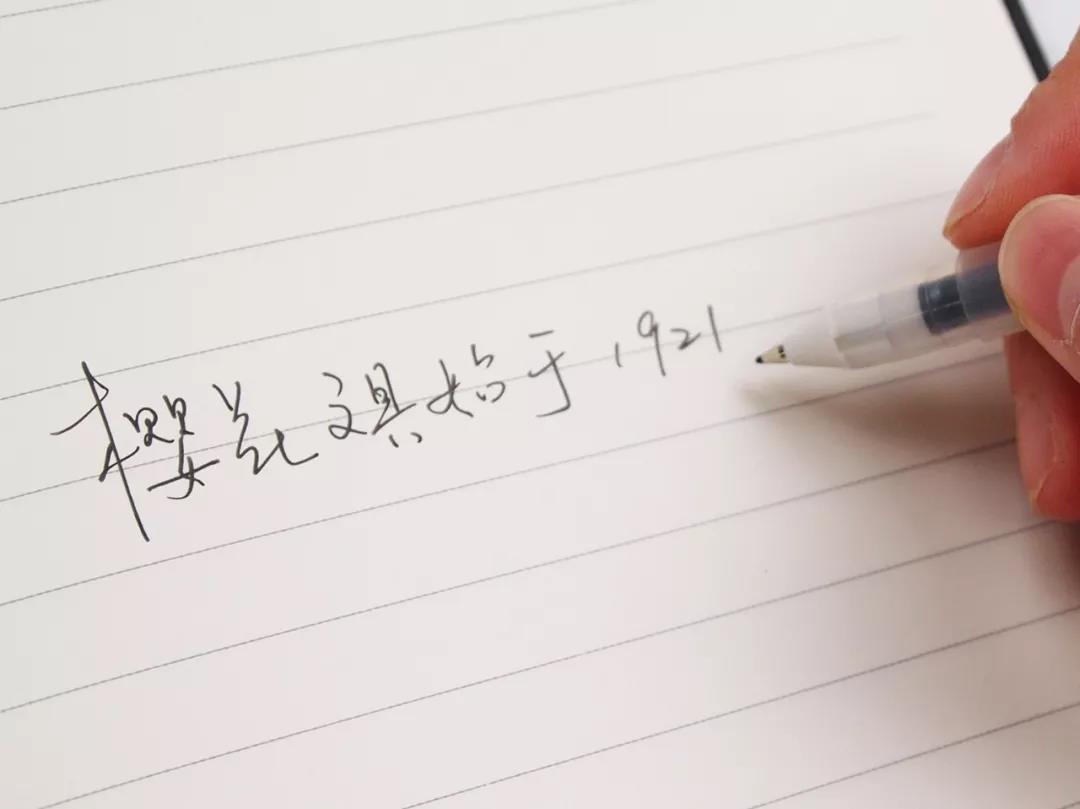 樱花文具始于1921